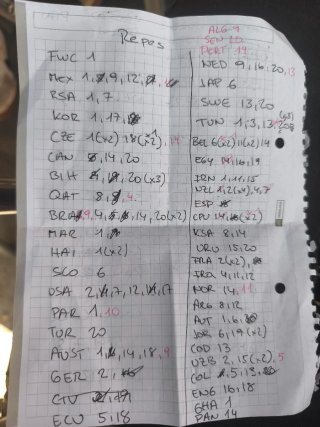 Repos
FWC 1
MEX 1, 9, 12,
RSA 1, 7
KOR 1, 17,
CZE 1(x2) 18(x2)
CAN 14, 20
BIH 20(x3)
QAT 8, 4
BRA 9, 4, 14, 20(x2)
MAR 1,
HAI 1(x2)
SCO 6
USA 2, 7, 12, 17
PAR 1, 10
TUR 20
AUST 1, 14, 18, 9
GER 2,
CIV
ECU 5, 18
ALG 9
SEN 20
PORT 14
NED 9, 16, 20, 13
JAP 6
SWE 13, 20
TUN 1, 3, 13, 20 (x3)
BEL 6(x2) 11(x2) 14
EGY 16, 19
IRN 1, 11, 15
NZL 1, 2(x4), 4, 7
ESP
CPV 14, (x2)
KSA 8, 14
URU 15, 20
FRA 2(x2),
IRQ 4, 11, 12
NOR 14, 11
ARG 8, 12
AUT 1, 6,
JOR 6, 19(x2)
COD 13
UZB 2, 15(x2), 5
COL 5, 13,
ENG 16, 18
GHA 1
PAN 14